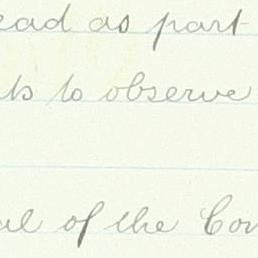 ead as part
ts to observe
al of the Cou